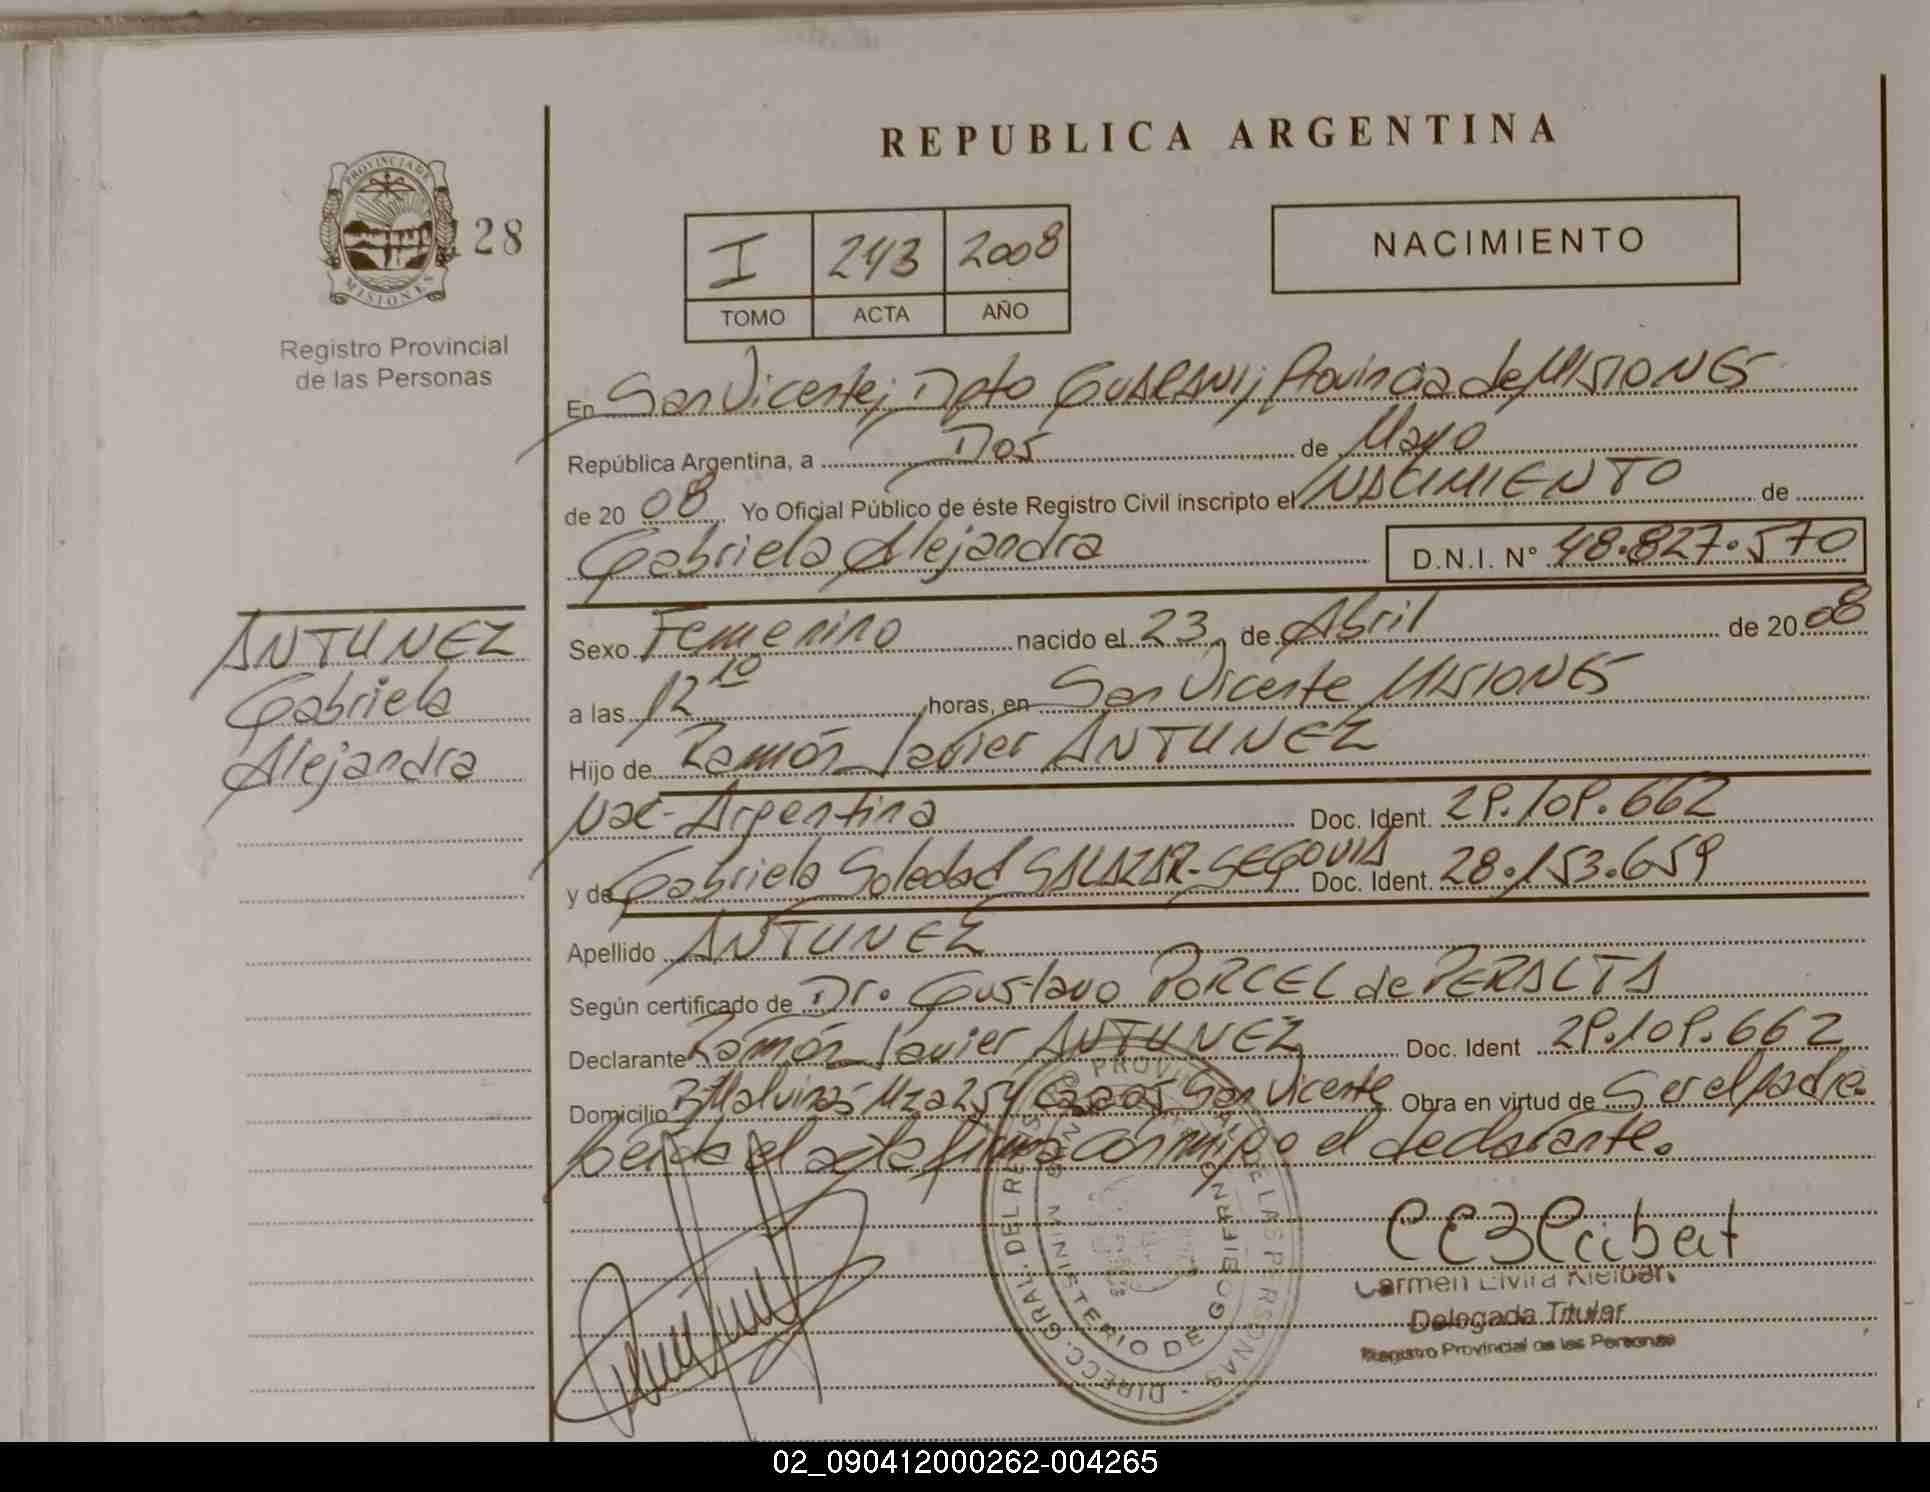 REPUBLICA ARGENTINA
PROVINCIA DE
MISIONES
128
Registro Provincial
de las Personas
I 243 2008
TOMO ACTA AÑO
NACIMIENTO
En San Vicente; Dpto GUARANI; Provincia de MISIONES
República Argentina, a Dos de Mayo
de 2008. Yo Oficial Público de éste Registro Civil inscripto el NACIMIENTO de
Gabriela Alejandra D.N.I. N° 48.827.570
ANTUNEZ
Gabriela
Alejandra
Sexo Femenino nacido el 23 de Abril de 2008
a las 12 10 horas, en San Vicente MISIONES
Hijo de Ramón Javier ANTUNEZ
Nac. Argentina Doc. Ident. 29.109.662
y de Gabriela Soledad SALAZAR-SEGOVIA Doc. Ident. 28.153.659
Apellido ANTUNEZ
Según certificado de Dr. Gustavo PORCEL de PERALTA
Declarante Ramón Javier ANTUNEZ Doc. Ident 29.109.662
Domicilio B° Malvinas Mza 254 San Vicente Obra en virtud de Ser el padre.
Leída el acta firma conmigo el declarante.
DIRECC. GRAL. DEL REGISTRO PROVINCIAL DE LAS PERSONAS
MINISTERIO DE GOBIERNO
Carmen Elvira Kleibert
Delegada Titular
Registro Provincial de las Personas
02_090412000262-004265